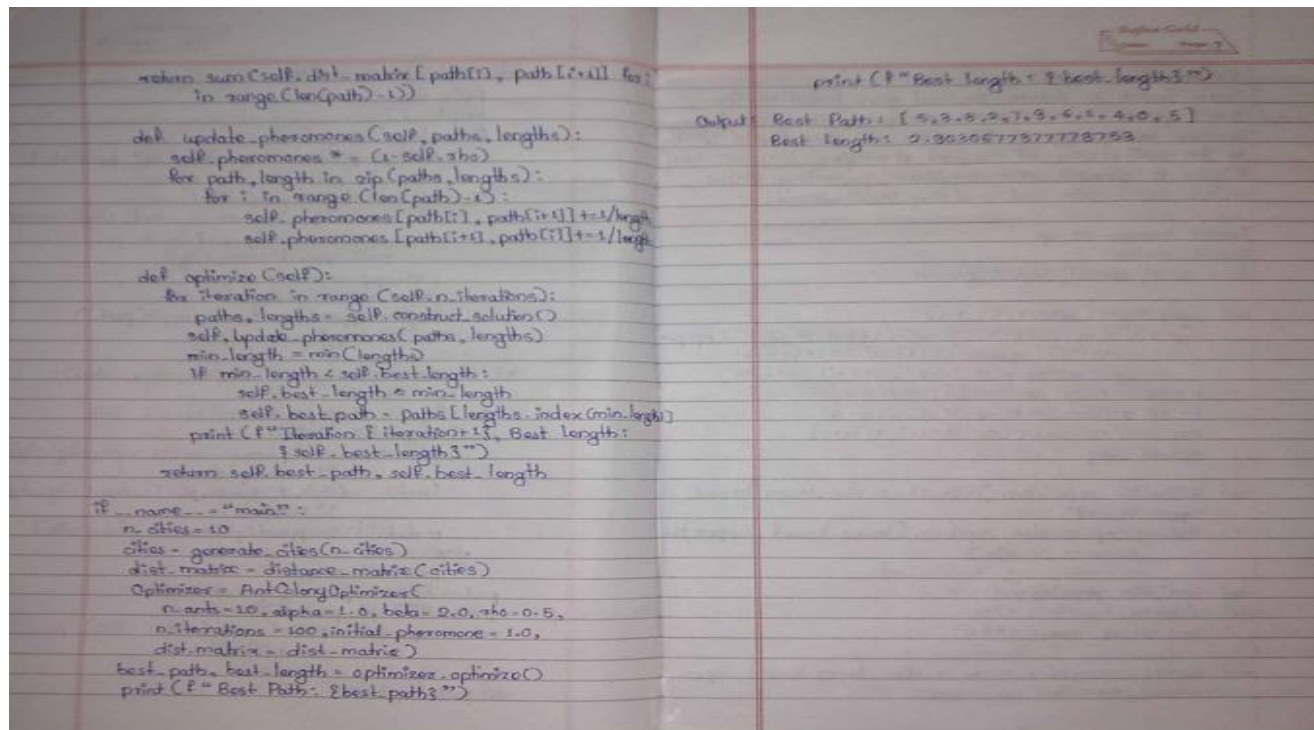 return sum(self.dist_matrix[path[i], path[i+1]] for i
in range(len(path)-1))
def update_pheromones(self, paths, lengths):
self.pheromones *= (1-self.rho)
for path, length in zip(paths, lengths):
for i in range(len(path)-1):
self.pheromones[path[i], path[i+1]] += 1/length
self.pheromones[path[i+1], path[i]] += 1/length
def optimize(self):
for iteration in range(self.n_iterations):
paths, lengths = self.construct_solution()
self.update_pheromones(paths, lengths)
min_length = min(lengths)
if min_length < self.best_length:
self.best_length = min_length
self.best_path = paths[lengths.index(min_length)]
print(f"Iteration {iteration+1}, Best Length:
{self.best_length}")
return self.best_path, self.best_length
if __name__ = "main":
n_cities = 10
cities = generate_cities(n_cities)
dist_matrix = distance_matrix(cities)
Optimizer = AntColonyOptimizer(
n_ants=10, alpha=1.0, beta=2.0, rho=0.5,
n_iterations=100, initial_pheromone=1.0,
dist_matrix=dist_matrix)
best_path, best_length = optimizer.optimize()
print(f"Best Path: {best_path}")
Page: 7
print(f"Best length = {best_length}")
Output: Best Path: [
Best Length: